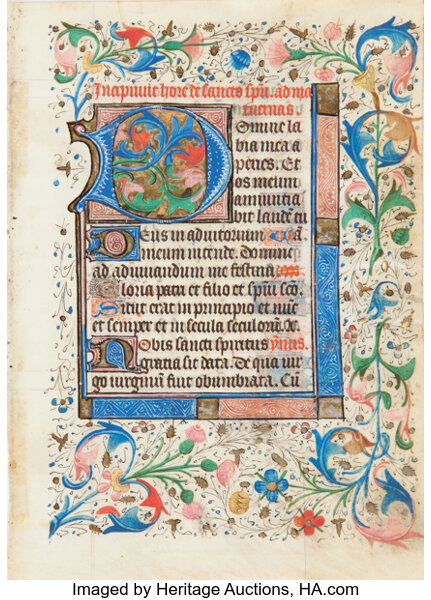 Incipiunt hore de sancto spũ. ad ma
tutinas
Domine la
bia mea a
peries. Et
os meum
annuncia
bit laudẽ tu
Deus in adiutorium ... ã.
meum intende. Domine
ad adiuuandum me festina
Gloria patri et filio et spũi scõ.
Sicut erat in principio et nũc
et semper et in secula seculorũ. ac
Nobis sancti spiritus ymis.
gratia sit data. De qua uir
go uirginũ fuit obumbrata. Cũ
Imaged by Heritage Auctions, HA.com